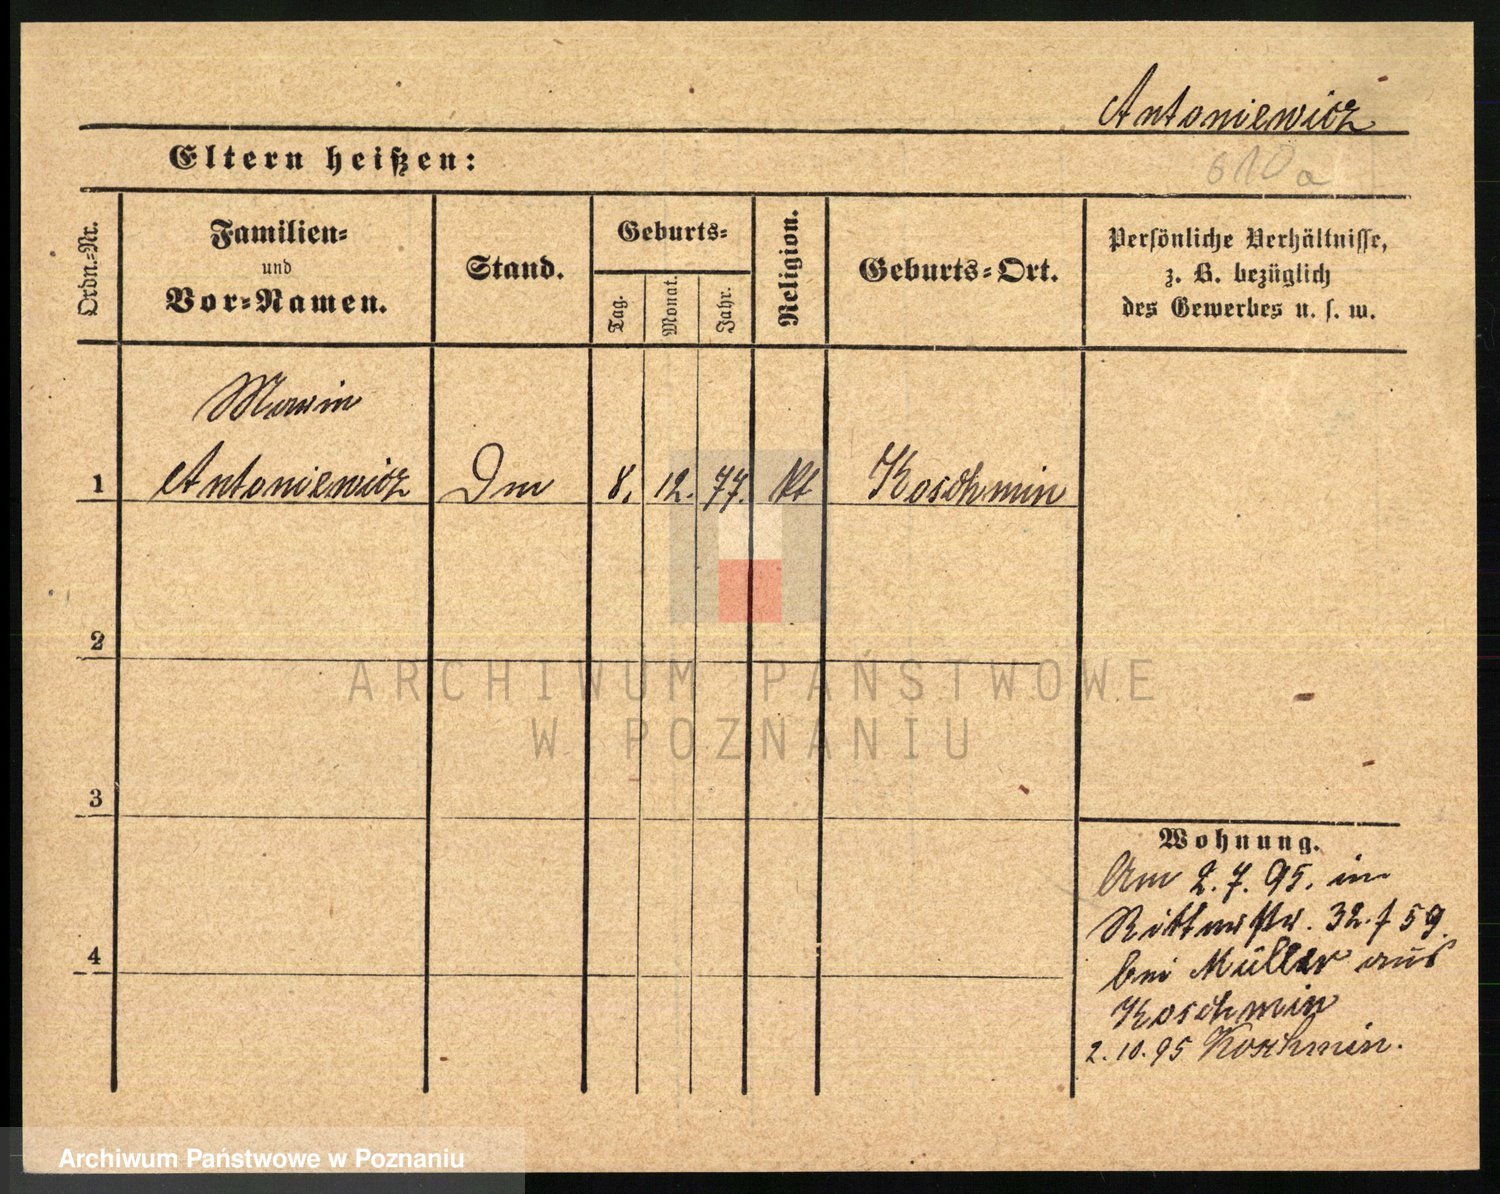 Antoniewicz
Eltern heißen:
610a
Ordn.-Nr.
Familien-
und
Vor-Namen.
Stand.
Geburts-
Tag.
Monat.
Jahr.
Religion.
Geburts-Ort.
Persönliche Verhältnisse,
z. B. bezüglich
des Gewerbes u. s. w.
Marie
1 Antoniewicz Dm 8. 12. 77. kt Koschmin
2
3
4
Wohnung.
Am 2. 7. 95. in
Ritterstr. 32. f 59.
bei Müller aus
Koschmin
2. 10. 95 Koschmin.
ARCHIWUM PAŃSTWOWE
W POZNANIU
Archiwum Państwowe w Poznaniu